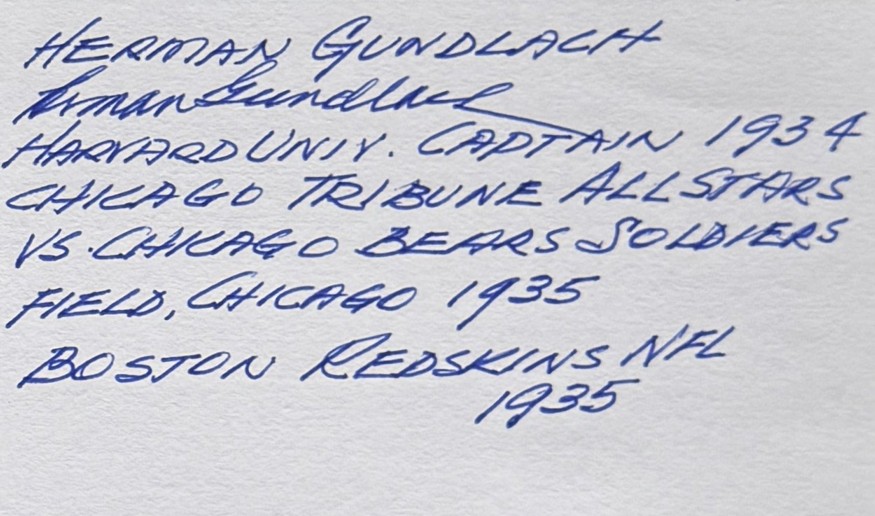 HERMAN GUNDLACH
Herman Gundlach
HARVARD UNIV. CAPTAIN 1934
CHICAGO TRIBUNE ALL STARS
VS. CHICAGO BEARS SOLDIERS
FIELD, CHICAGO 1935
BOSTON REDSKINS NFL
1935